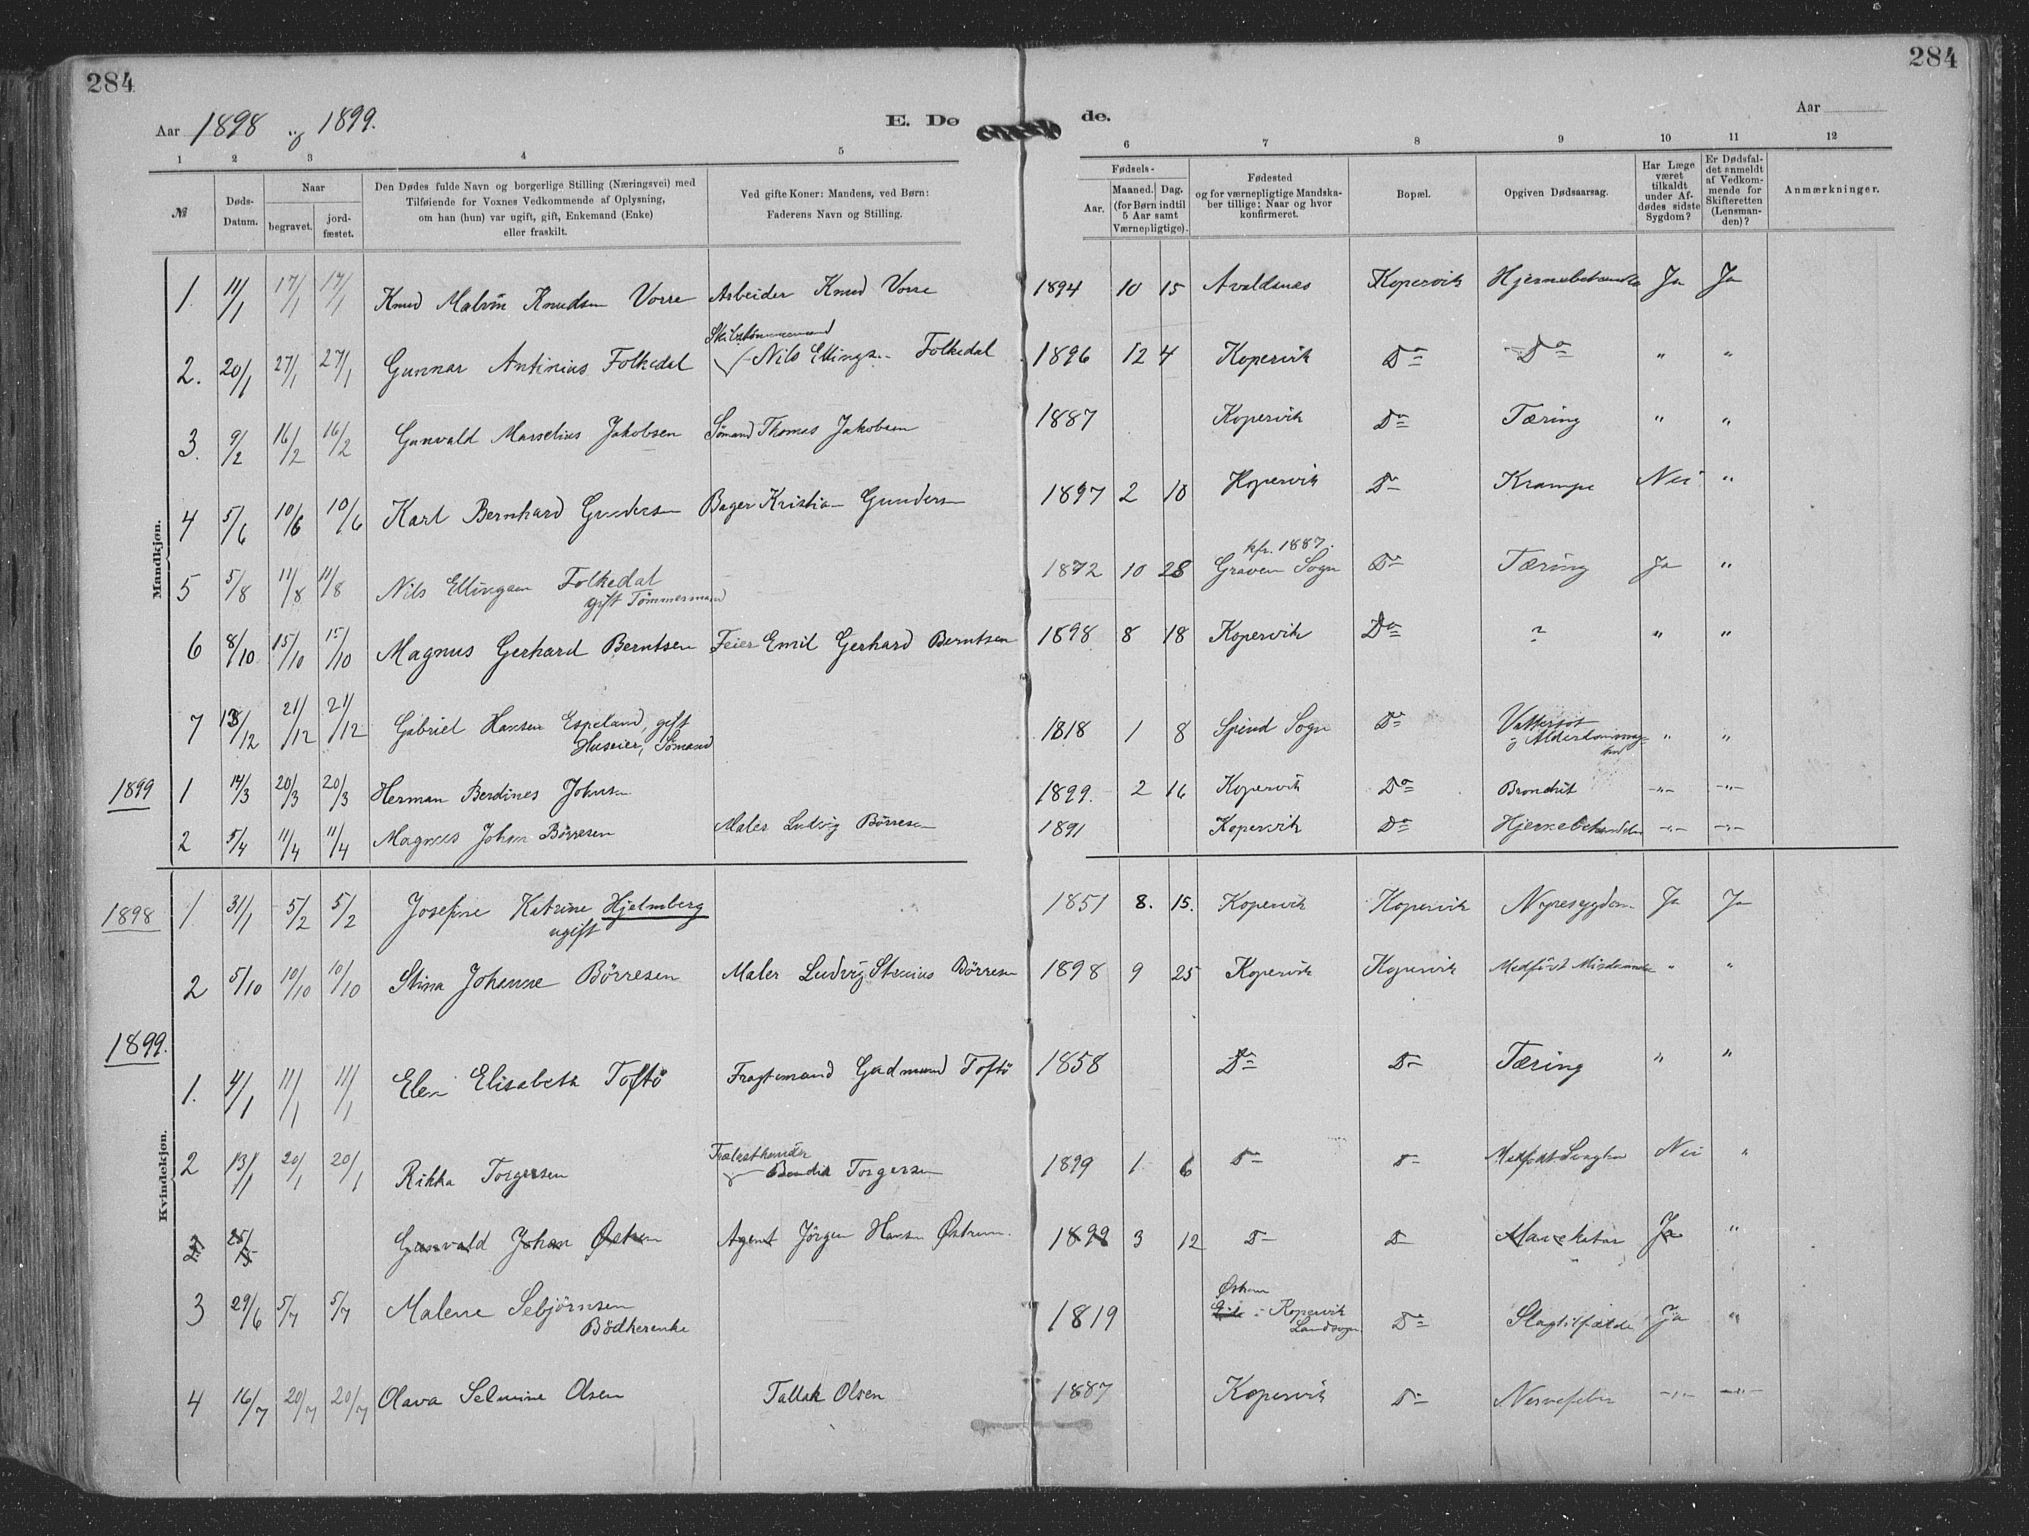 284
284
Aar 1898 og 1899.
E. Dø de.
Aar
1 2 3 4 5 6 7 8 9 10 11 12
№
Døds-Datum.
Naar
begravet.
jord-fæstet.
Den Dødes fulde Navn og borgerlige Stilling (Næringsvei) med
Tilføiende for Voxnes Vedkommende af Oplysning,
om han (hun) var ugift, gift, Enkemand (Enke)
eller fraskilt.
Ved gifte Koner: Mandens, ved Børn:
Faderens Navn og Stilling.
Fødsels-
Aar.
Maaned. Dag.
(for Børn indtil
5 Aar samt
Værnepligtige).
Fødested
og for værnepligtige Mandska-
ber tillige: Naar og hvor
konfirmeret.
Bopæl.
Opgiven Dødsaarsag.
Har Læge
været
tilkaldt
under Af-
dødes sidste
Sygdom?
Er Dødsfal-
det anmeldt
af Vedkom-
mende for
Skifteretten
(Lensman-
den)?
Anmærkninger.
Mandkjøn.
1. 11/1 17/1 17/1 Knud Malvin Knudsen Vorre Arbeider Knud Vorre 1894 10 15 Avaldsnes Kopervik Hjernebetændelse Ja Ja
2. 20/1 27/1 27/1 Gunnar Antinius Folkedal Nils Ellings. Folkedal 1896 12 4 Kopervik Do Do " "
3. 9/2 16/2 16/2 Gunvald Marselius Jakobsen Sømand Thomas Jakobsen 1887 Kopervik Do Tæring " "
4 5/6 10/6 10/6 Karl Bernhard Gundersen Bager Kristian Gundersen 1897 2 10 Kopervik Do Krampe Nei "
kfr. 1887.
5 5/8 11/8 11/8 Nils Ellingsen Folkedal 1872 10 28 Graven Sogn Do Tæring Ja "
gift Tømmermand
6 8/10 15/10 15/10 Magnus Gerhard Berntsen Feier Emil Gerhard Berntsen 1898 8 18 Kopervik Do ? " "
7 13/12 21/12 21/12 Gabriel Hansen Espeland, gift 1818 1 8 Spind Sogn Do Vattersot
Huseier, Sømand og Alderdomssvaghed " "
1899 1 14/3 20/3 20/3 Herman Berdines Johnsen 1899. 2 16 Kopervik Do Bronchit -"- -"-
2 5/4 11/4 11/4 Magnus Johan Børresen Maler Ludvig Børresen 1891 Kopervik Do Hjernebetændelse -"- -"-
Kvindekjøn.
1898 1 31/1 5/2 5/2 Josefine Katrine Hjelmberg 1851 8. 15. Kopervik Kopervik Nyresygdom Ja Ja
ugift
2 5/10 10/10 10/10 Stina Johanne Børresen Maler Ludvig Børresen 1898 9 25 Kopervik Kopervik Medfødt Misdannelse " "
1899.
1. 4/1 11/1 11/1 Elen Elisabeth Toftø Fragtemand Gudmund Toftø 1858 Do Do Tæring " "
2 13/1 20/1 20/1 Rikka Torgersen Bendik Torgersen 1899 1 6 Do Do Medfødt Svaghed Nei "
Gunvald Johan Østrem Agent Jørgen Hansen Østrem. 1899 3 12 Do Do Ja "
Østhem
3 29/6 5/7 5/7 Malene Sebjørnsen 1819 Kopervik Do Slagtilfælde Ja "
Bødkerenke Landsogn
4 16/7 20/7 20/7 Olava Selmine Olsen Tallak Olsen 1887 Kopervik Do Nervefeber -"- -"-